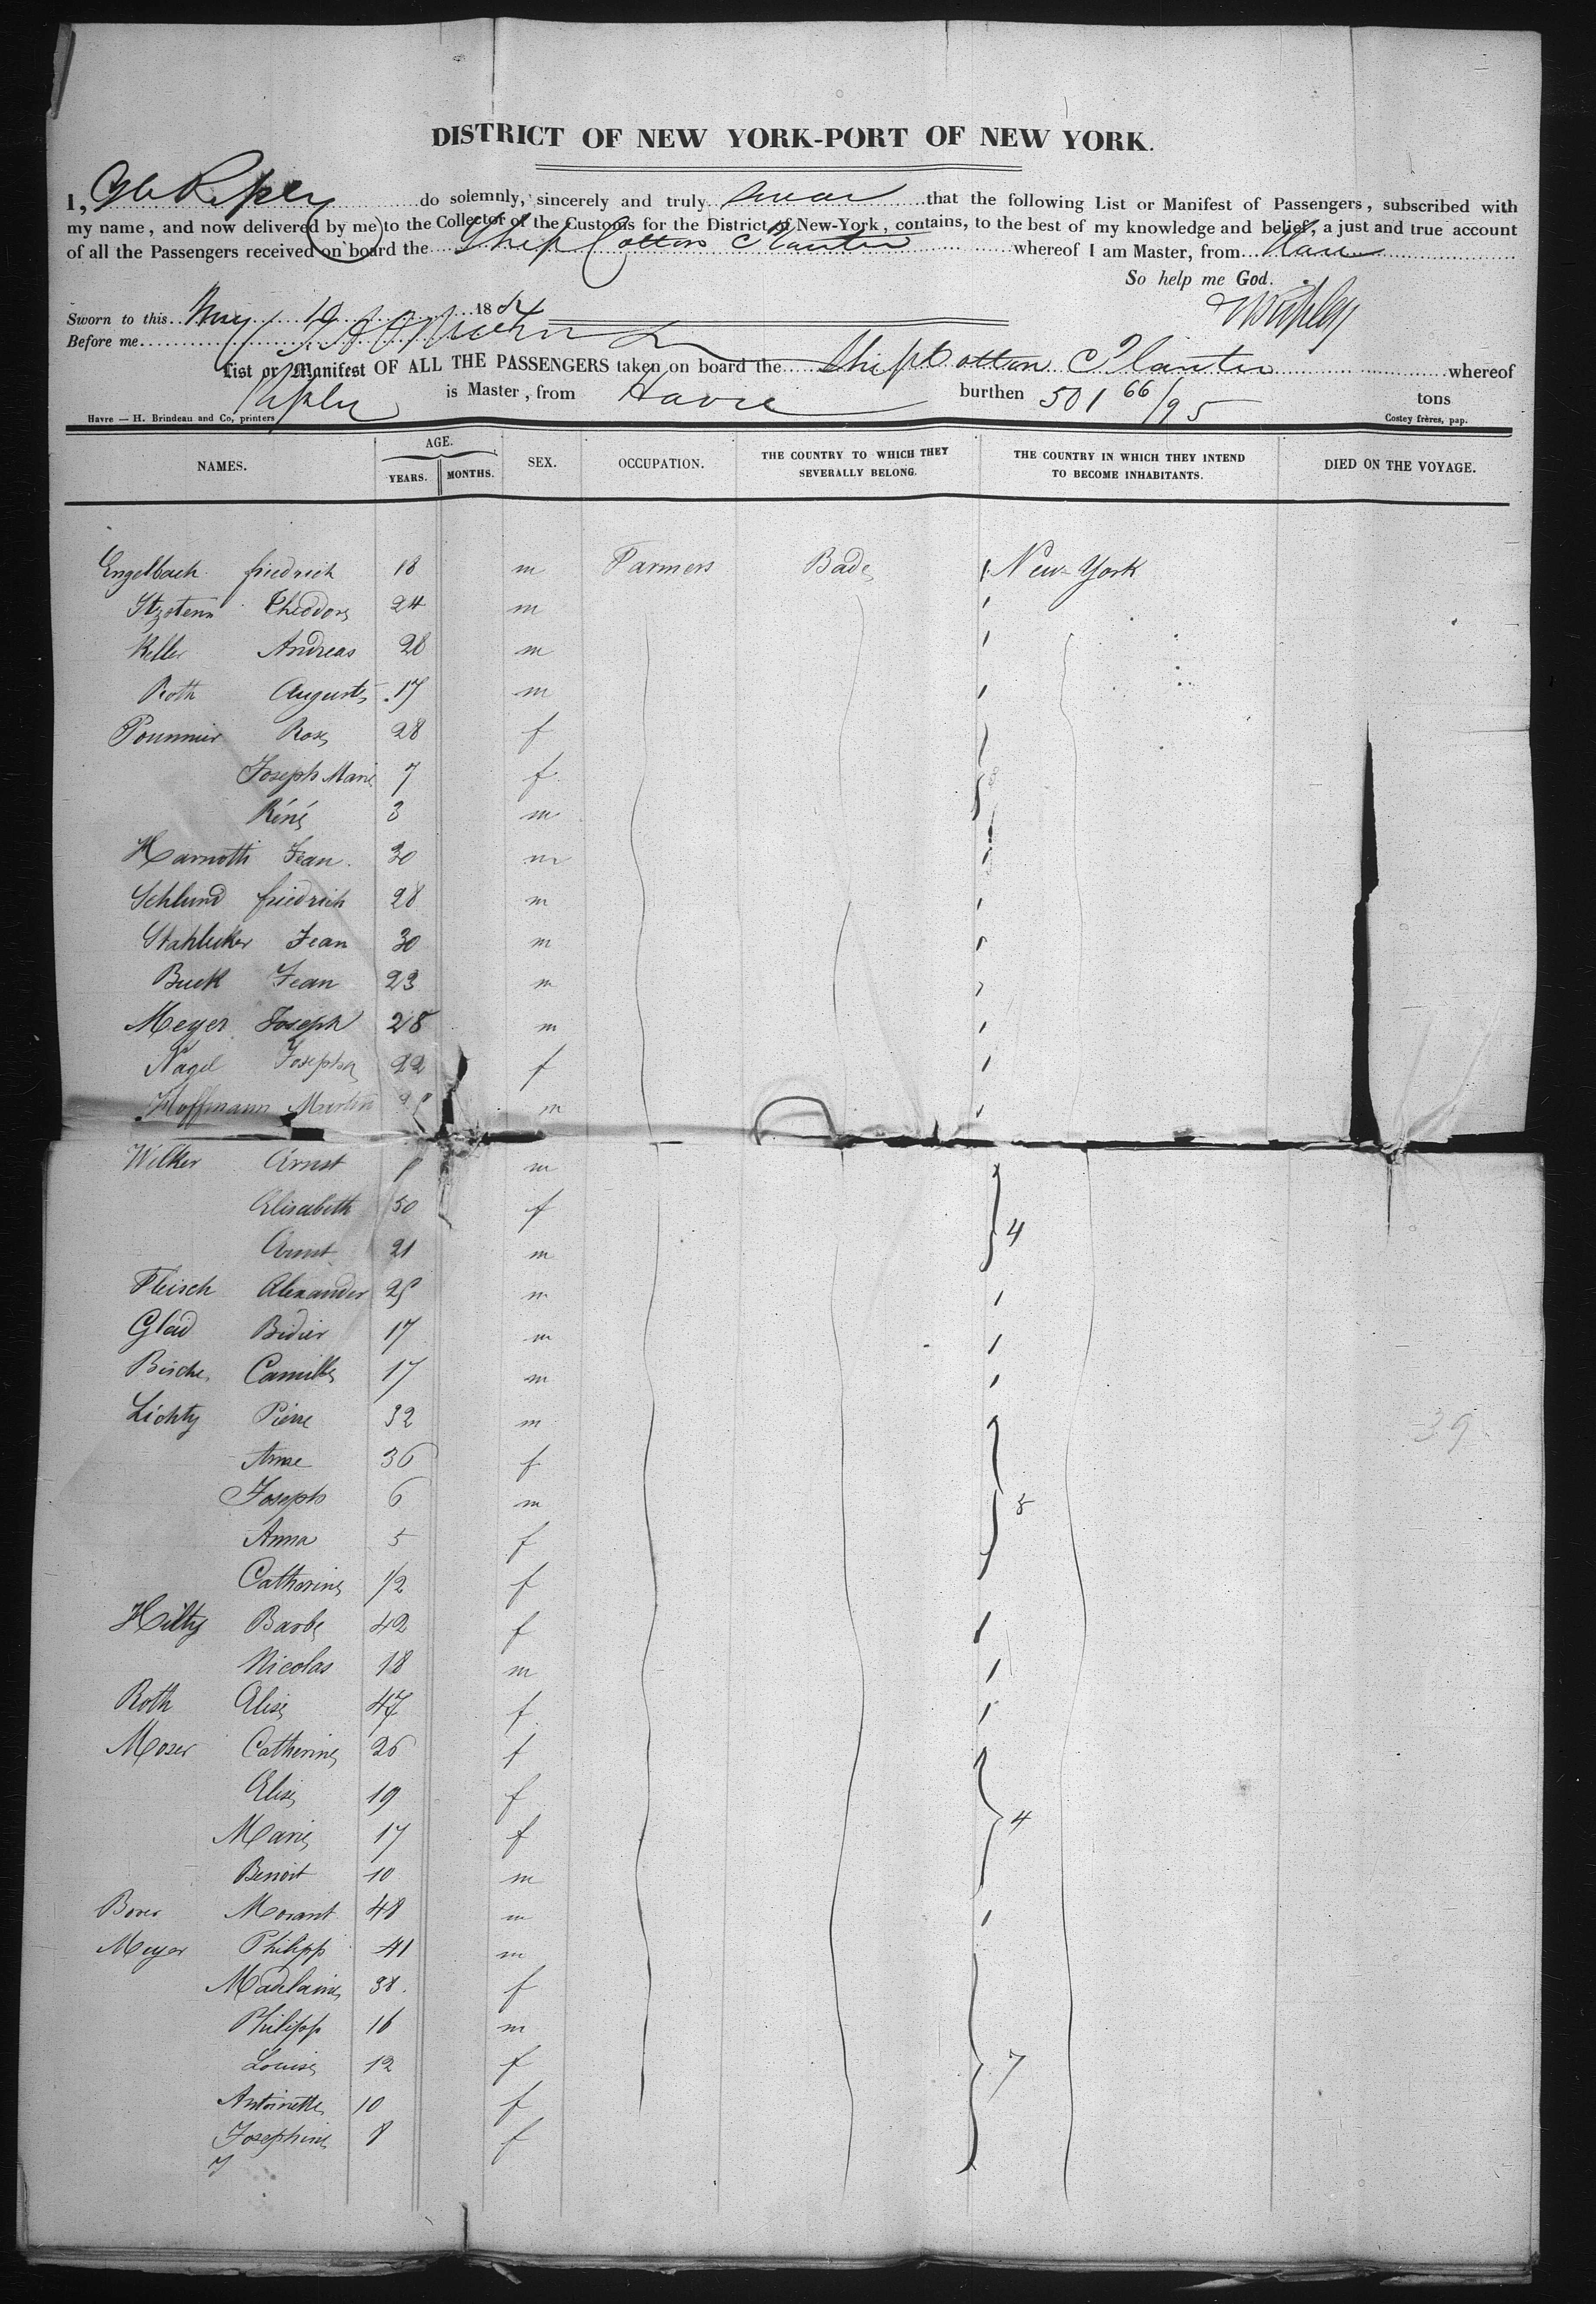 DISTRICT OF NEW YORK-PORT OF NEW YORK.
I, Ripley do solemnly, sincerely and truly swear that the following List or Manifest of Passengers, subscribed with
my name, and now delivered by me to the Collector of the Customs for the District of New-York, contains, to the best of my knowledge and belief, a just and true account
of all the Passengers received on board the Ship Cotton Planter whereof I am Master, from Havre
So help me God.
Ripley
Sworn to this May 19 18
Before me
List or Manifest OF ALL THE PASSENGERS taken on board the Ship Cotton Planter whereof
Ripley is Master, from Havre burthen 501 66/95 tons
Havre — H. Brindeau and Co, printers Costey frères, pap.
NAMES. AGE. YEARS. MONTHS. SEX. OCCUPATION. THE COUNTRY TO WHICH THEY SEVERALLY BELONG. THE COUNTRY IN WHICH THEY INTEND TO BECOME INHABITANTS. DIED ON THE VOYAGE.
Engelbach friedrich 18 m Farmers Bade New-York
Itzstenn Theodore 24 m
Keller Andreas 28 m
Roth Auguste 17 m
Pounnier Rose 28 f
Joseph Marie 7 f
Réné 3 m
Harnotti Jean 30 m
Schlund friedrich 28 m
Stahlecker Jean 30 m
Buck Jean 23 m
Meyer Joseph 28 m
Nagel Josepha 22 f
Hoffmann Martin m
Wilker Ernst m
Elisabeth 50 f
Ernst 21 m 4
Fleisch Alexander 25 m
Glad Bidier 17 m
Bische Camille 17 m
Lichty Pierre 32 m
Anne 36 f
Joseph 6 m 5
Anna 5 f
Catherine 1/2 f
Hilty Barbe 42 f
Nicolas 18 m
Roth Elise 47 f
Moser Catherine 26 f
Elise 19 f
Marie 17 f 4
Benoit 10 m
Borer Morant 48 m
Meyer Philipp 41 m
Madelaine 38 f
Philipp 16 m
Louise 12 f 7
Antoinette 10 f
Josephine 8 f
39